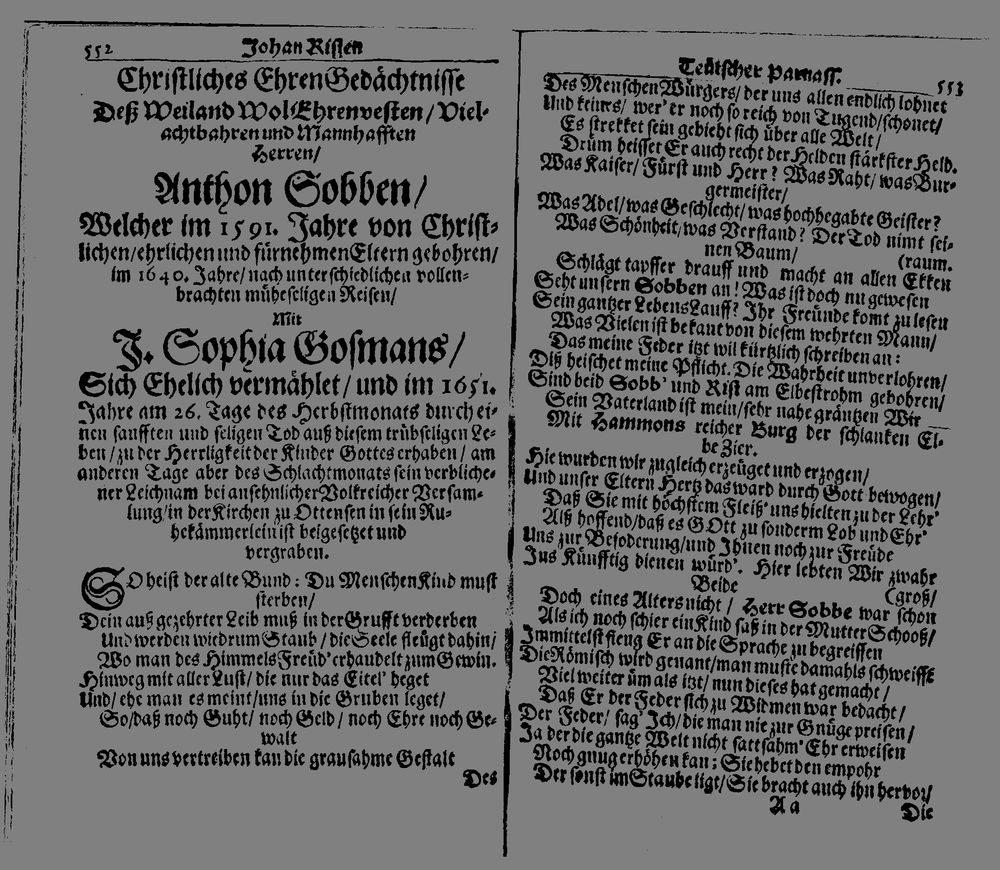 552 Johan Risten
Christliches EhrenGedächtnisse
Deß Weiland Wol Ehrenvesten / Viel-
achtbahren und Mannhafften
Herren /
Anthon Sobben /
Welcher im 1591. Jahre von Christ-
lichen / ehrlichen und fürnehmen Eltern gebohren /
im 1640. Jahre / nach unterschiedlichen vollen-
brachten müheseligen Reisen /
Mit
J. Sophia Gosmans /
Sich Ehelich vermählet / und im 1651.
Jahre am 26. Tage des Herbstmonats durch ei-
nen saufften und seligen Tod auß diesem trübseligen Le-
ben / zu der Herrligkeit der Kinder Gottes erhaben / am
anderen Tage aber des Schlachtmonats sein verbliche-
ner Leichnam bei ansehnlicher Volkreicher Versam-
lung / in der Kirchen zu Ottensen in sein Ru-
hekämmerlein ist beigesetzet und
vergraben.
SO heist der alte Bund: Du MenschenKind must
sterben /
Dein auß gezehrter Leib muß in der Grufft verderben
Und werden wiedrum Staub / die Seele fleügt dahin /
Wo man des Himmels Freüd' erhandelt zum Gewin.
Hinweg mit aller Lust / die nur das Eitel' heget
Und / ehe man es meint / uns in die Gruben leget /
So / daß noch Guht / noch Geld / noch Ehre noch Ge-
walt
Von uns vertreiben kan die grausahme Gestalt
Des
Teütscher Parnass. 553
Des Menschen Würgers / der uns allen endlich lohnet
Und keines / wer' er noch so reich von Tugend / schonet /
Es strekket sein gebieht sich über alle Welt /
Drüm heisset Er auch recht der Helden stärkster Held.
Was Kaiser / Fürst und Herr? Was Raht / was Bur-
germeister /
Was Adel / was Geschlecht / was hochbegabte Geister?
Was Schönheit / was Verstand? Der Tod nimt sei-
nen Baum / (raum.
Schlägt tapffer drauff und macht an allen Ekken
Seht unsern Sobben an! Was ist doch nu gewesen
Sein gantzer Lebens Lauff? Ihr Freünde komt zu lesen
Was Vielen ist bekant von diesem wehrten Mann /
Das meine Feder itzt wil kürtzlich schreiben an:
Diß heischet meine Pflicht. Die Wahrheit unverlohren /
Sind beid Sobb' und Rist am Elbestrohm gebohren /
Sein Vaterland ist mein / sehr nahe gräntzen Wir
Mit Hammons reicher Burg der schlanken El-
be Zier.
Hie wurden wir zugleich erzeüget und erzogen /
Und unser Eltern Hertz das ward durch Gott bewogen /
Daß Sie mit höchstem Fleiß' uns hielten zu der Lehr'
Alß hoffend / daß es GOtt zu sonderm Lob und Ehr'
Uns zur Befoderung / und Ihnen noch zur Freüde
Ins Künfftig dienen würd'. Hier lebten Wir zwahr
Beide (groß /
Doch eines Alters nicht / Herr Sobbe war schon
Als ich noch schier ein Kind saß in der Mutter Schooß /
Immittelst fieng Er an die Sprache zu begreiffen
Die Römisch wird genant / man muste damahls schweiffe
Viel weiter üm als itzt / nun dieses hat gemacht /
Daß Er der Feder sich zu Widmen war bedacht /
Der Feder / sag' Ich / die man nie zur Gnüge preisen /
Ja der die gantze Welt nicht sattsahm' Ehr erweisen
Noch gnug erhöhen kan; Sie hebet den empohr
Der sonst im Staube ligt / Sie bracht auch ihn hervor /
A a Die